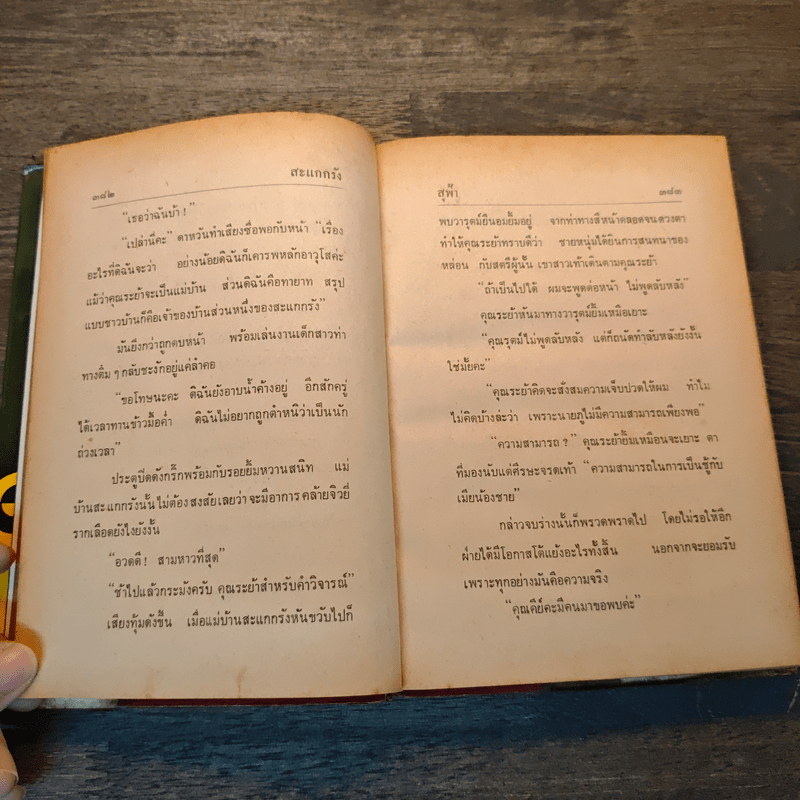 ๓๘๒
สะแกกรัง
“เธอว่าฉันบ้า!”
“เปล่านี่คะ” ตาหวันทำเสียงซื่อพอกับหน้า “เรื่อง
อะไรที่ดิฉันจะว่า อย่างน้อยดิฉันก็เคารพหลักอาวุโสค่ะ
แม้ว่าคุณระย้าจะเป็นแม่บ้าน ส่วนดิฉันคือทายาท สรุป
แบบชาวบ้านก็คือเจ้าของบ้านส่วนหนึ่งของสะแกกรัง”
มันยิ่งกว่าถูกตบหน้า พร้อมเล่นงานเด็กสาวท่า
ทางติ๋ม ๆ กลับชะงักอยู่แค่ลำคอ
“ขอโทษนะคะ ดิฉันยังอาบน้ำค้างอยู่ อีกสักครู่
ได้เวลาทานข้าวมื้อค่ำ ดิฉันไม่อยากถูกตำหนิว่าเป็นนัก
ถ่วงเวลา”
ประตูปิดดังกริ๊กพร้อมกับรอยยิ้มหวานสนิท แม่
บ้านสะแกกรังนั้นไม่ต้องสงสัยเลยว่าจะมีอาการคล้ายจิวยี่
รากเลือดยังไงยังงั้น
“อวดดี! สามหาวที่สุด”
“ช้าไปแล้วกระมังครับ คุณระย้าสำหรับคำวิจารณ์”
เสียงทุ้มดังขึ้น เมื่อแม่บ้านสะแกกรังหันขวับไปก็
สุฟ้า
๓๘๓
พบวารุตม์ยืนอมยิ้มอยู่ จากท่าทางสีหน้าตลอดจนดวงตา
ทำให้คุณระย้าทราบดีว่า ชายหนุ่มได้ยินการสนทนาของ
หล่อน กับสตรีผู้นั้น เขาสาวเท้าเดินตามคุณระย้า
“ถ้าเป็นไปได้ ผมจะพูดต่อหน้า ไม่พูดลับหลัง”
คุณระย้าหันมาทางวารุตม์ยิ้มเหมือเยาะ
“คุณรุตม์ไม่พูดลับหลัง แต่ก็ถนัดทำลับหลังยังงั้น
ใช่มั้ยคะ”
“คุณระย้าคิดจะสั่งสมความเจ็บปวดให้ผม ทำไม
ไม่คิดบ้างล่ะว่า เพราะนายภูไม่มีความสามารถเพียงพอ”
“ความสามารถ?” คุณระย้ายิ้มเหมือนจะเยาะ ตา
ที่มองนับแต่ศีรษะจรดเท้า “ความสามารถในการเป็นชู้กับ
เมียน้องชาย”
กล่าวจบร่างนั้นก็พรวดพราดไป โดยไม่รอให้อีก
ฝ่ายได้มีโอกาสโต้แย้งอะไรทั้งสิ้น นอกจากจะยอมรับ
เพราะทุกอย่างมันคือความจริง
“คุณดีย์คะมีคนมาขอพบค่ะ”